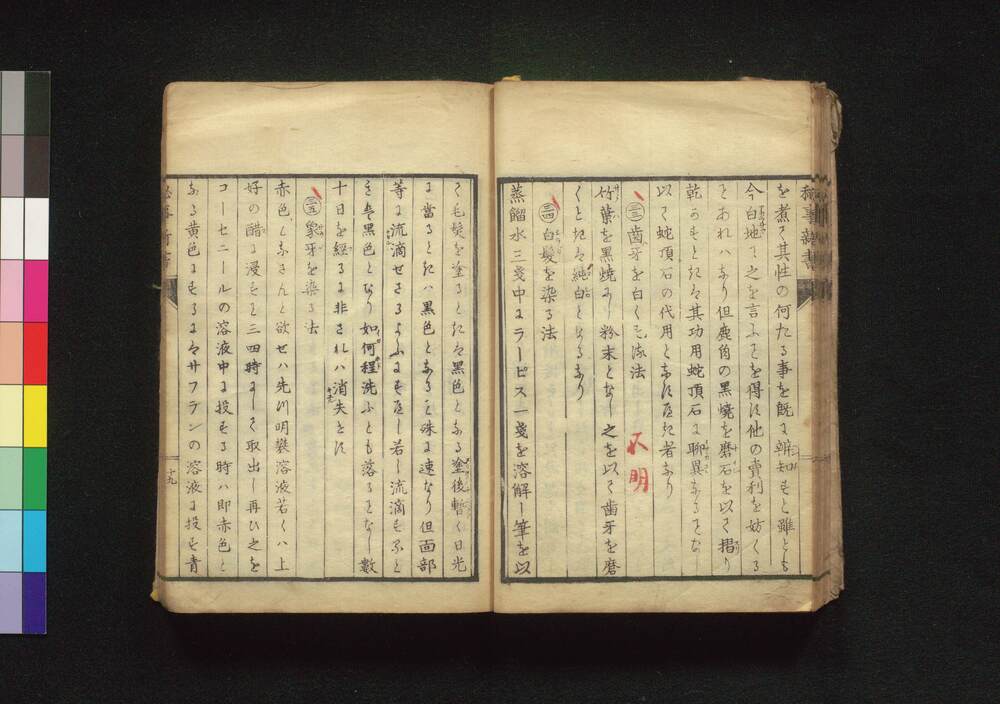 を煮て其性の何たる事を既に辨知もと雖とも
今白地て之を言ふを得は他の賣利を妨くる
とあれハなり但鹿角の黒燒を磨石を以て摺り
乾かすときは其功用蛇頂石に聊異なるとなし
以て蛇頂石の代用となす可き者なり
三三 歯牙を白くする法
不明
竹葉を黒焼にし粉末となし之を以て歯牙を磨
くときは純白となるなり
三四 白髪を染る法
蒸餾水三戔中にラーピス一戔を溶解し筆を以
て毛髪を塗るときは黒色となる塗後暫く日光
に當るときハ黒色となること殊に速なり但面部
等に流滴せさるように若し流滴すると
き黒色となり如何程洗ふとも落ることなし數
十日を經るに非されハ消失せす
三五 象牙を染る法
赤色になさんと欲せハ先ツ明礬溶液若くハ上
好の醋に浸すこと三四時にして取出し再ひ之を
コーセニールの溶液中に投する時ハ即赤色と
なる黄色にするにはサフランの溶液に投す青
十九